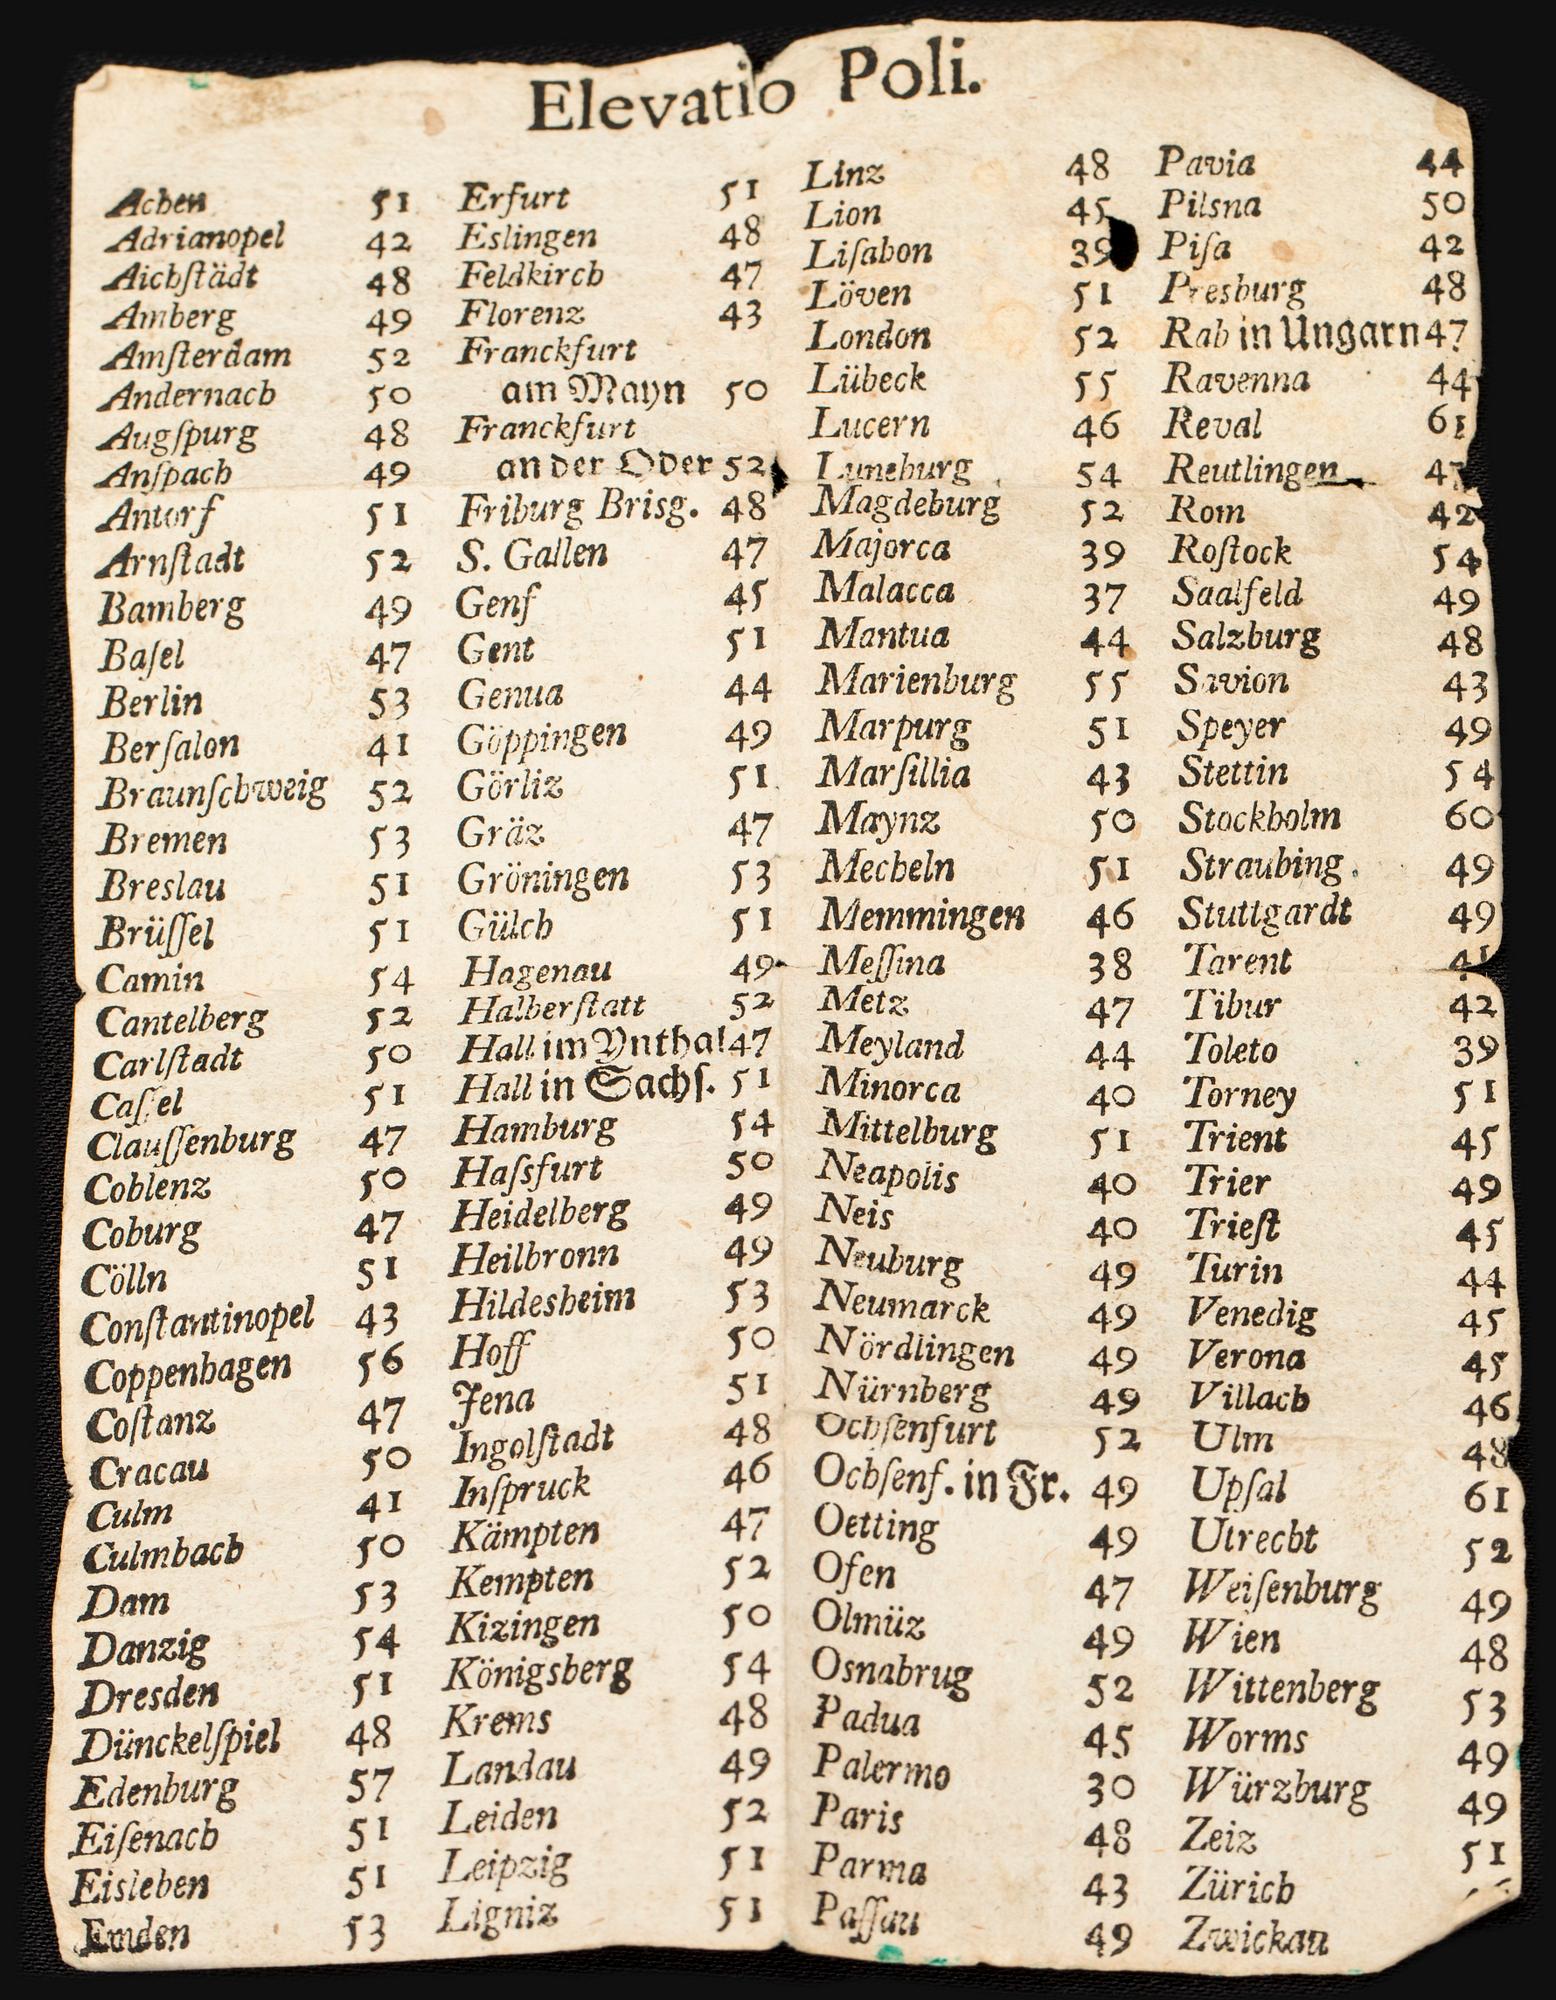 Elevatio Poli.
Achen 51
Adrianopel 42
Aichſtädt 48
Amberg 49
Amſterdam 52
Andernach 50
Augſpurg 48
Anſpach 49
Antorf 51
Arnſtadt 52
Bamberg 49
Baſel 47
Berlin 53
Berſalon 41
Braunſchweig 52
Bremen 53
Breslau 51
Brüſſel 51
Camin 54
Cantelberg 52
Carlſtadt 50
Caſſel 51
Clauſſenburg 47
Coblenz 50
Coburg 47
Cölln 51
Conſtantinopel 43
Coppenhagen 56
Coſtanz 47
Cracau 50
Culm 41
Culmbach 50
Dam 53
Danzig 54
Dresden 51
Dünckelſpiel 48
Edenburg 57
Eiſenach 51
Eisleben 51
Emden 53
Erfurt 51
Eslingen 48
Feldkirch 47
Florenz 43
Franckfurt
am Mayn 50
Franckfurt
an der Oder 52
Friburg Brisg. 48
S. Gallen 47
Genf 45
Gent 51
Genua 44
Göppingen 49
Görliz 51
Gräz 47
Gröningen 53
Gülch 51
Hagenau 49
Halberſtatt 52
Hall im Ynthal 47
Hall in Sachſ. 51
Hamburg 54
Haſsfurt 50
Heidelberg 49
Heilbronn 49
Hildesheim 53
Hoff 50
Jena 51
Ingolſtadt 48
Inſpruck 46
Kämpten 47
Kempten 52
Kizingen 50
Königsberg 54
Krems 48
Landau 49
Leiden 52
Leipzig 51
Ligniz 51
Linz 48
Lion 45
Liſabon 39
Löven 51
London 52
Lübeck 55
Lucern 46
Luneburg 54
Magdeburg 52
Majorca 39
Malacca 37
Mantua 44
Marienburg 55
Marpurg 51
Marſillia 43
Maynz 50
Mecheln 51
Memmingen 46
Meſſina 38
Metz 47
Meyland 44
Minorca 40
Mittelburg 51
Neapolis 40
Neis 40
Neuburg 49
Neumarck 49
Nördlingen 49
Nürnberg 49
Ochſenfurt 52
Ochſenf. in Fr. 49
Oetting 49
Ofen 47
Olmüz 49
Osnabrug 52
Padua 45
Palermo 30
Paris 48
Parma 43
Paſſau 49
Pavia 44
Pilsna 50
Piſa 42
Presburg 48
Rab in Ungarn 47
Ravenna 44
Reval 61
Reutlingen
Rom 42
Roſtock 54
Saalfeld 49
Salzburg 48
Savion 43
Speyer 49
Stettin 54
Stockholm 60
Straubing. 49
Stuttgardt 49
Tarent
Tibur 42
Toleto 39
Torney 51
Trient 45
Trier 49
Trieſt 45
Turin 44
Venedig 45
Verona 45
Villach 46
Ulm 48
Upſal 61
Utrecht 52
Weiſenburg 49
Wien 48
Wittenberg 53
Worms 49
Würzburg 49
Zeiz 51
Zürich
Zwickau